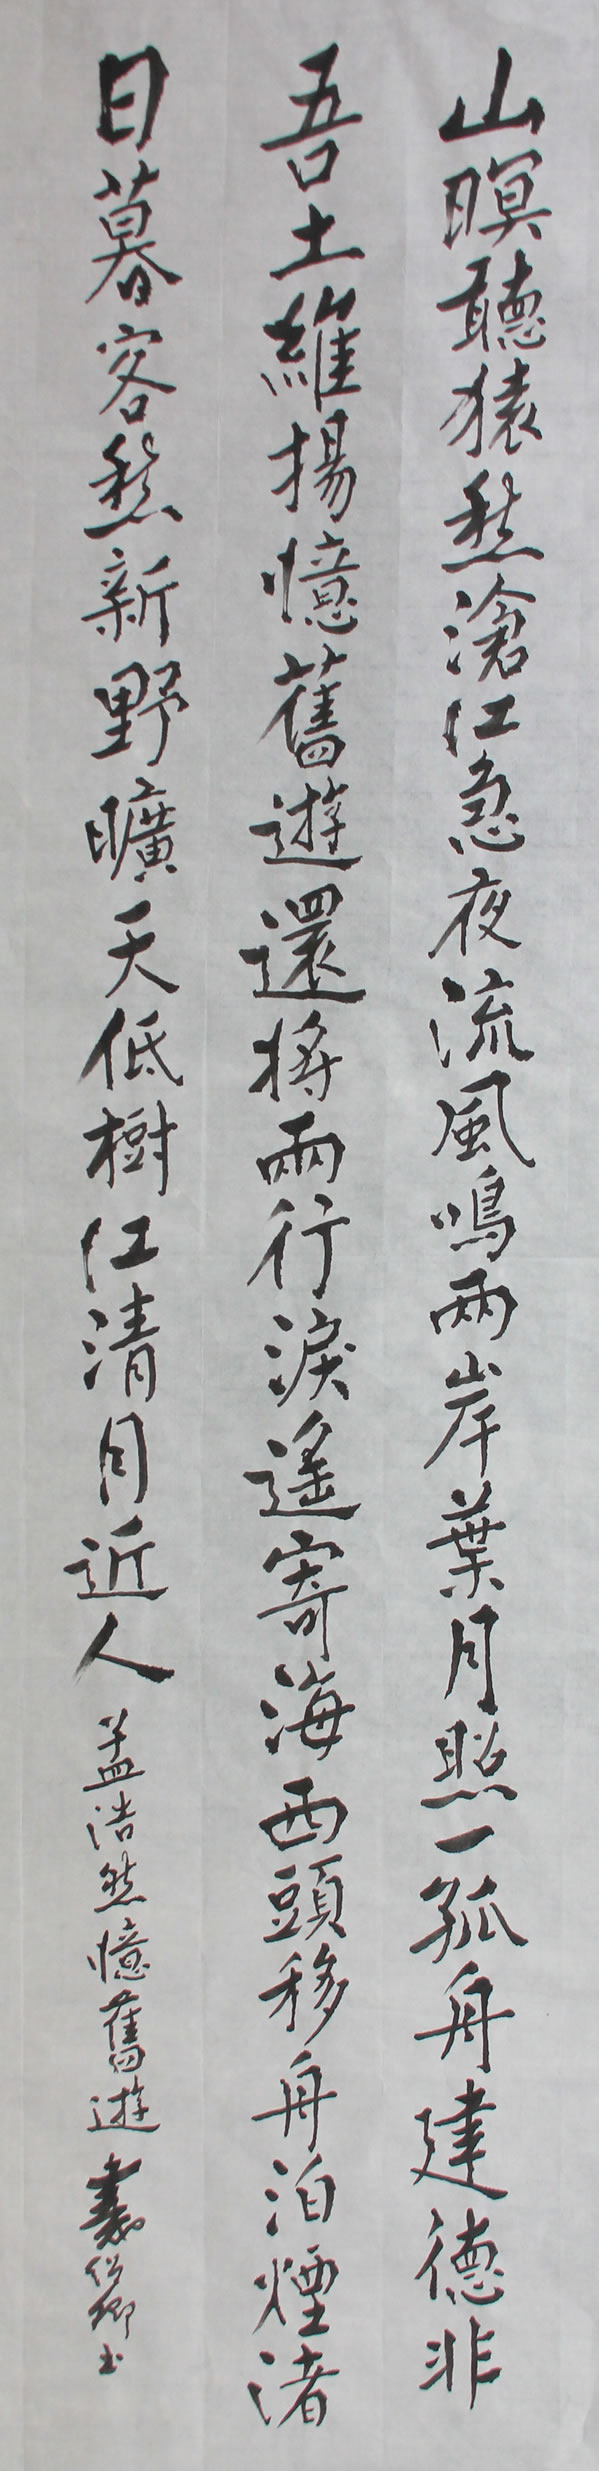 山暝聽猿愁滄江急夜流風鳴兩岸葉月照一孤舟建德非
吾土維揚憶舊遊還將兩行淚遙寄海西頭移舟泊煙渚
日暮客愁新野曠天低樹江清月近人
孟浩然憶舊遊